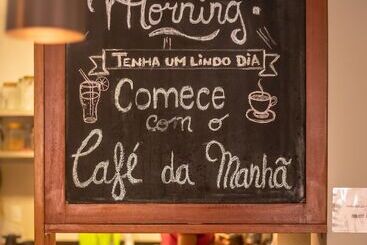 Morning.
TENHA UM LINDO DIA
Comece
com o
Café da Manhã